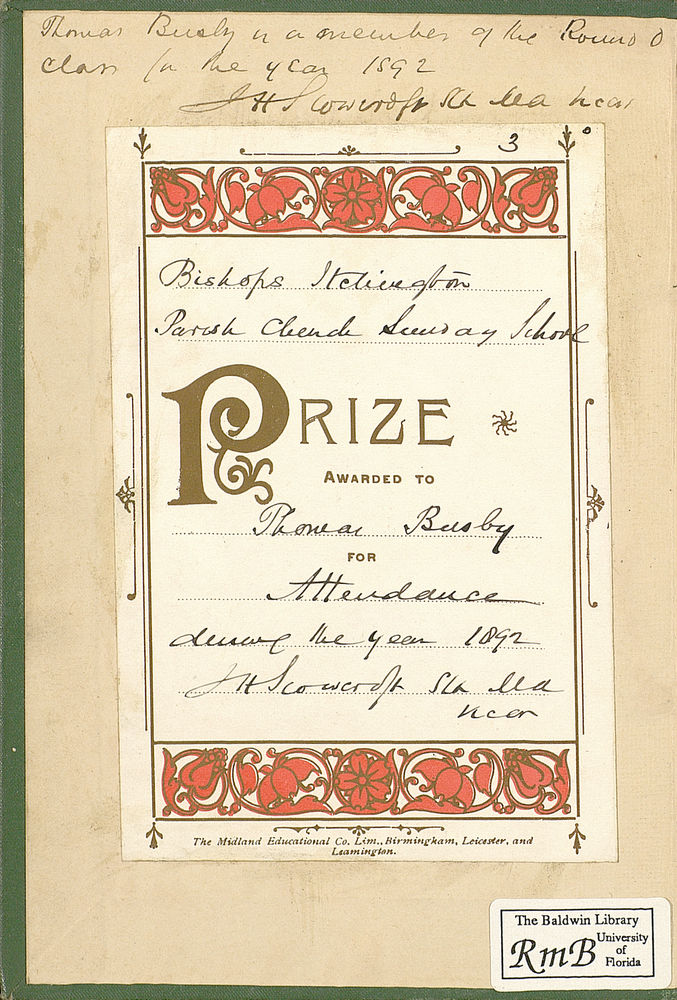 Thomas Busby is a member of the Round O
class for the year 1892
J H Scowcroft
3
Bishops Itchington
Parish Church Sunday School
PRIZE
AWARDED TO
Thomas Busby
FOR
Attendance
during the year 1892
J H Scowcroft
Vicar
The Midland Educational Co. Lim., Birmingham, Leicester, and
Leamington.
The Baldwin Library
RmB University
of
Florida